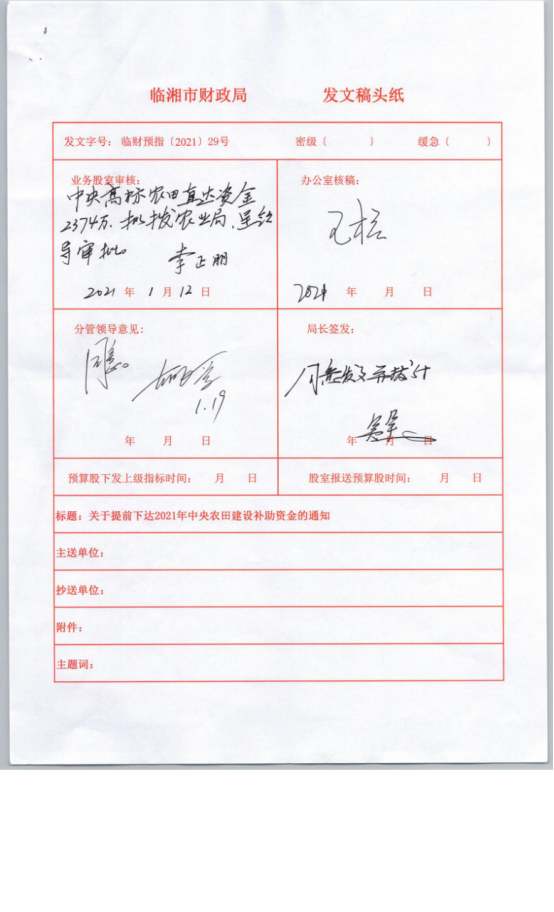 临湘市财政局 发文稿头纸
发文字号：临财预指〔2021〕29号 密级〔 〕 缓急〔 〕
业务股室审核：
中央高标农田直达资金
2374万，拟拨农业局，呈领
导审批
李正朋
2021 年 1 月 12 日
办公室核稿：
2021 年 月 日
分管领导意见：
同意。
1.19
年 月 日
局长签发：
同意发文并拨付
年 月 日
预算股下发上级指标时间： 月 日 股室报送预算股时间： 月 日
标题：关于提前下达2021年中央农田建设补助资金的通知
主送单位：
抄送单位：
附件：
主题词：